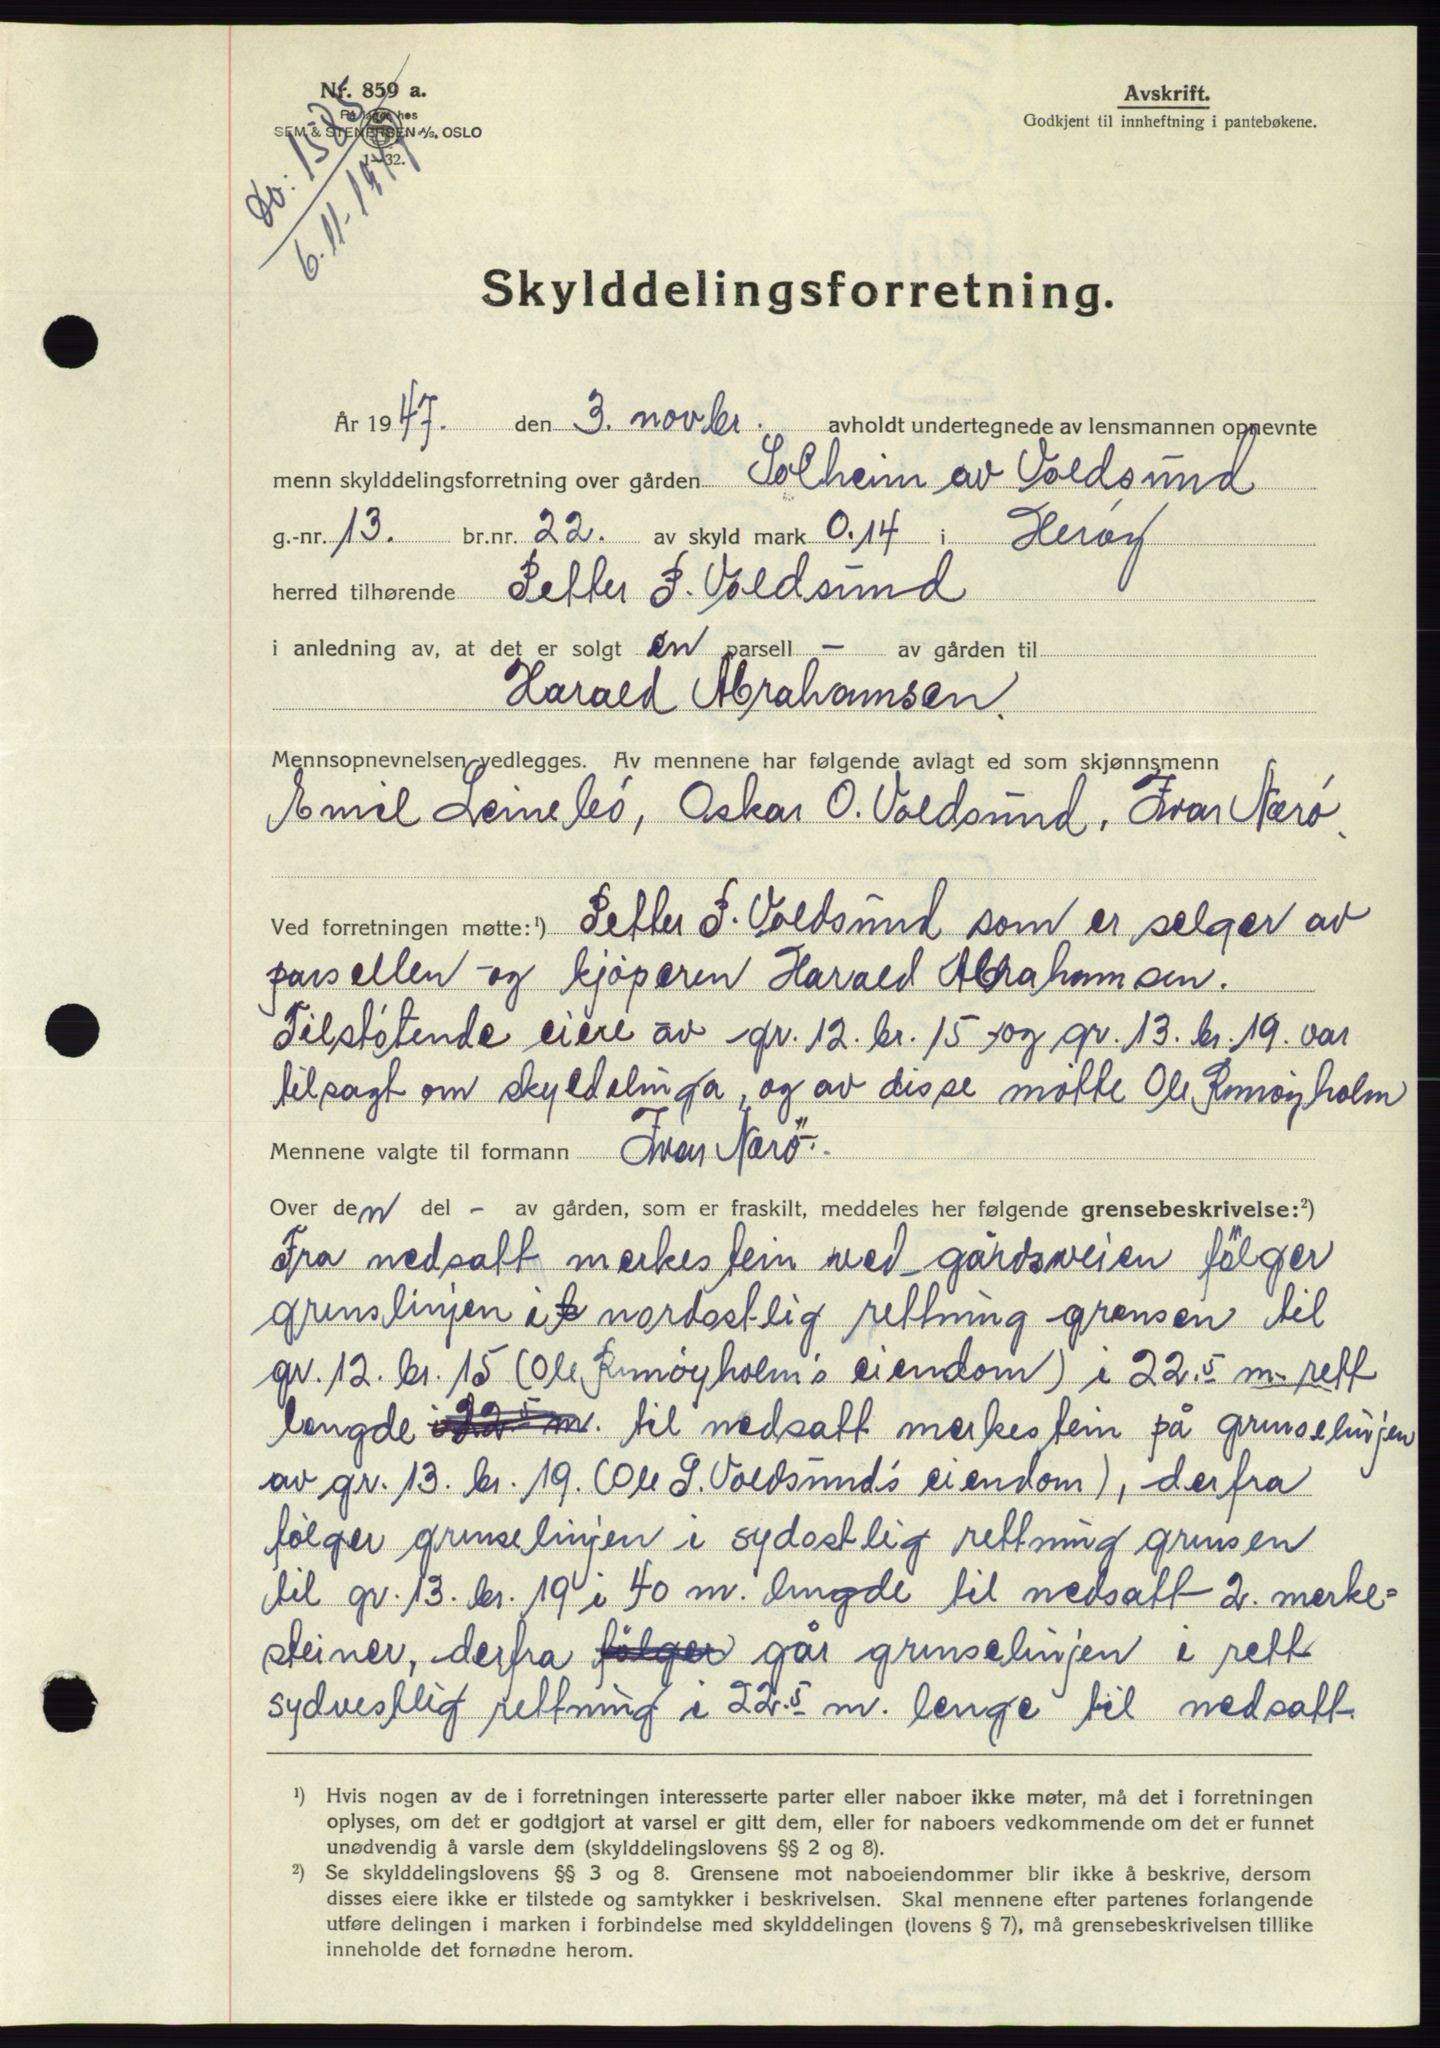 Nr. 859 a.
På lager hos
SEM & STENERSEN A/S. OSLO
1—32.
1525
6.11-1947
Avskrift.
Godkjent til innheftning i pantebøkene.
Skylddelingsforretning.
År 1947. den 3. novbr. avholdt undertegnede av lensmannen opnevnte
menn skylddelingsforretning over gården Solheim av Voldsund
g.-nr. 13. br.nr. 22. av skyld mark 0.14 i Herøy
herred tilhørende Petter P. Voldsund
i anledning av, at det er solgt en parsell - av gården til
Harald Abrahamsen.
Mennsopnevnelsen vedlegges. Av mennene har følgende avlagt ed som skjønnsmenn
Emil Leinebø, Oskar O. Voldsund, Ivar Nærø.
Ved forretningen møtte:¹) Petter P. Voldsund som er selger av
parsellen og kjøperen Harald Abrahamsen.
Tilstøtende eiere av gr. 12. br. 15 og gr. 13. br. 19. var
tilsagt om skyldelinga, og av disse møtte Ole Runøyholm
Mennene valgte til formann Ivar Nærö.
Over den del - av gården, som er fraskilt, meddeles her følgende grensebeskrivelse:²)
Fra nedsatt merkestein ved gårdsveien fölger
grenslinjen i nordostlig rettning grensen til
gr. 12. br. 15 (Ole Runøyholm's eiendom) i 22.5 m. rett
lengde i 22.5 m. til nedsatt merkestein på grenselinjen
av gr. 13. br. 19. (Ole S. Voldsund's eiendom), derfra
følger grenselinjen i sydostlig rettning grensen
til gr. 13. br. 19 i 40 m. lengde til nedsatt 2. merke=
steiner, derfra fölger går grenselinjen i rett
sydvestlig rettning i 22.5 m. lenge til nedsatt
¹) Hvis nogen av de i forretningen interesserte parter eller naboer ikke møter, må det i forretningen
oplyses, om det er godtgjort at varsel er gitt dem, eller for naboers vedkommende om det er funnet
unødvendig å varsle dem (skylddelingslovens §§ 2 og 8).
²) Se skylddelingslovens §§ 3 og 8. Grensene mot naboeiendommer blir ikke å beskrive, dersom
disses eiere ikke er tilstede og samtykker i beskrivelsen. Skal mennene efter partenes forlangende
utføre delingen i marken i forbindelse med skylddelingen (lovens § 7), må grensebeskrivelsen tillike
inneholde det fornødne herom.